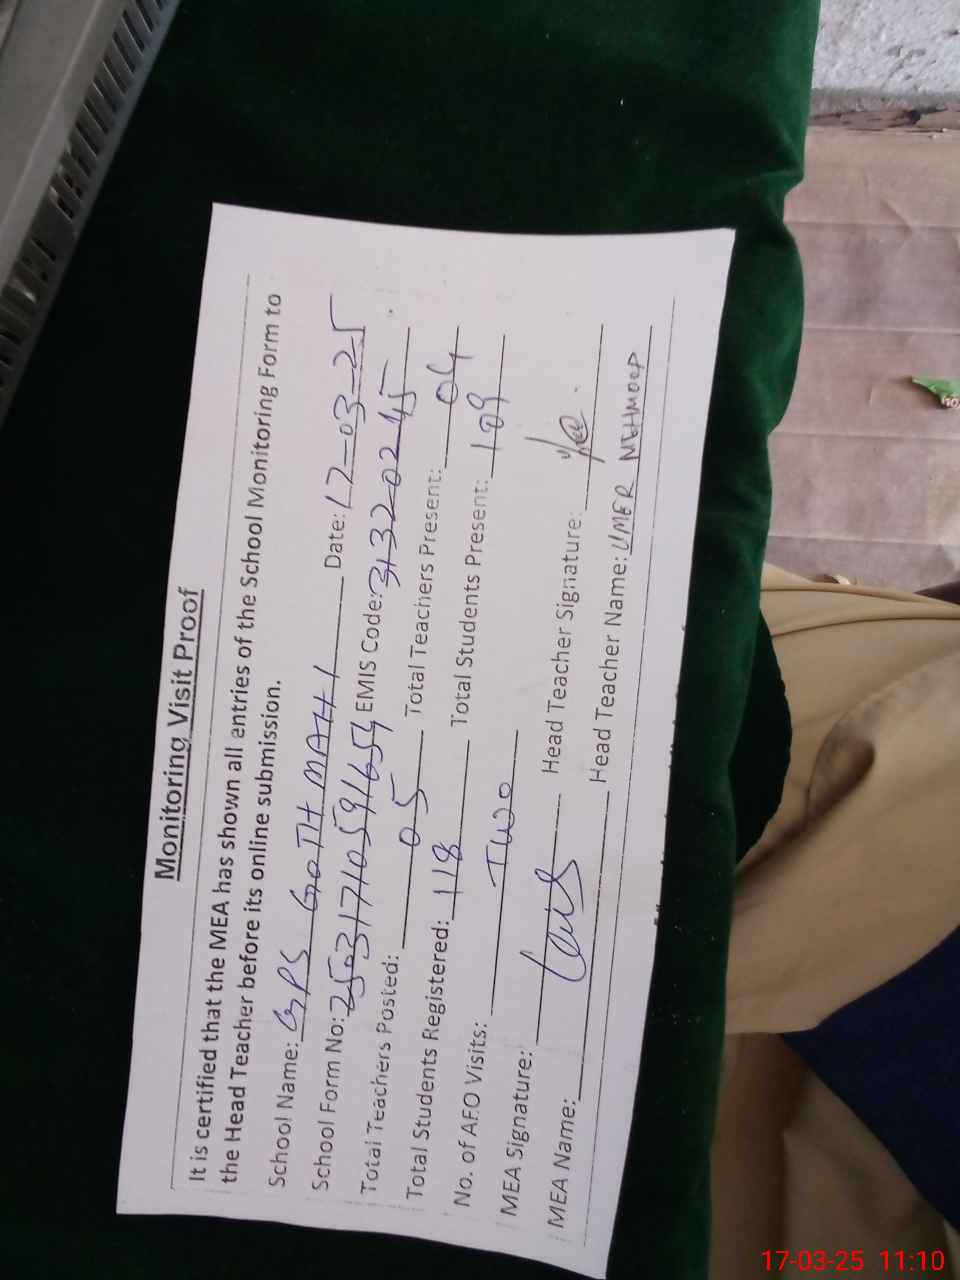 Monitoring Visit Proof
It is certified that the MEA has shown all entries of the School Monitoring Form to
the Head Teacher before its online submission.
School Name: GPS GOTH MAHI Date: 17-03-25
School Form No: 25031710591654 EMIS Code: 31320245
Total Teachers Posted: 05 Total Teachers Present: 04
Total Students Registered: 118 Total Students Present: 109
No. of AEO Visits: TWO
MEA Signature: Head Teacher Signature:
MEA Name: Head Teacher Name: UMER MEHMOOD
17-03-25 11:10